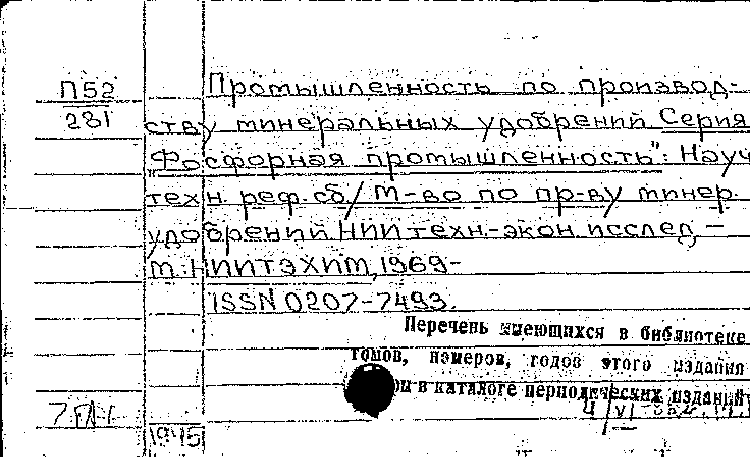 П52
281
Промышленность по производ-
ству минеральных удобрений Серия
"Фосфорная промышленность": Науч.
техн. реф. сб./ М-во по пр-ву минер.
удобрений НИИ техн.-экон. исслед. –
М.: НИИТЭХИМ, 1969-
ISSN 0207-7493.
Перечень имеющихся в библиотеке
томов, номеров, годов этого издания
в каталоге периодических изданий
1945